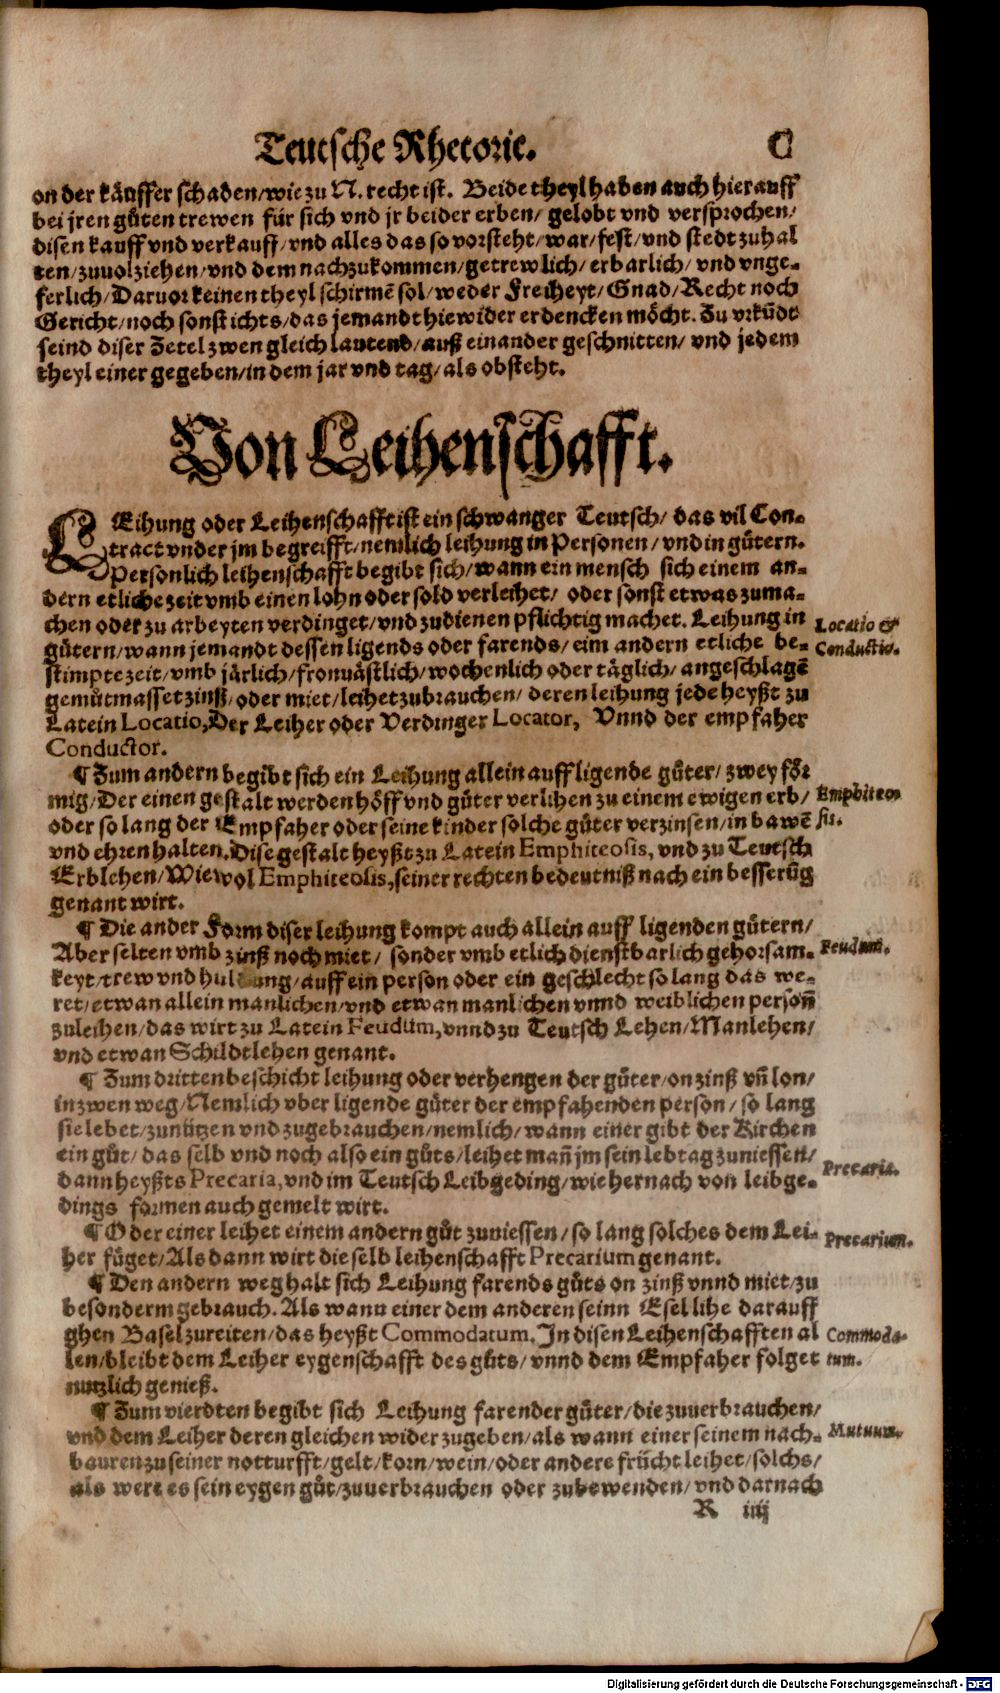 Teutsche Rhetoric. C
on der käuffer schaden/wie zu N. recht ist. Beide theyl haben auch hierauff
bei jren gůten trewen für sich vnd jr beider erben/ gelobt vnd versprochen/
disen kauff vnd verkauff/vnd alles das so vorsteht/war/fest/vnd stedt zuhal
ten/zuuolziehen/vnd dem nachzukommen/getrewlich/erbarlich/vnd vnge-
ferlich/Daruor keinen theyl schirmē sol/weder Freiheyt/Gnad/Recht noch
Gericht/noch sonst ichts/das jemandt hiewider erdencken möcht. Zu vrkūdt
seind diser Zetel zwen gleich lautend/auß einander geschnitten/ vnd jedem
theyl einer gegeben/in dem jar vnd tag/als obsteht.
Von Leihenschafft.
LEihung oder Leihenschafft ist ein schwanger Teutsch/ das vil Con-
tract vnder jm begreifft/nemlich leihung in Personen/vnd in gůtern.
Personlich leihenschafft begibt sich/wann ein mensch sich einem an-
dern etliche zeit vmb einen lohn oder sold verleihet/ oder sonst etwas zuma-
chen oder zu arbeyten verdinget/vnd zudienen pflichtig machet. Leihung in
gütern/wann jemandt dessen ligends oder farends/eim andern etliche be-
stimpte zeit/vmb järlich/fronuästlich/wochenlich oder täglich/angeschlagē
gemůtmasset zinß/oder miet/leihet zubrauchen/ deren leihung jede heyßt zu
Latein Locatio,Der Leiher oder Verdinger Locator, Vnnd der empfaher
Conductor.
Locatio &
Conductio.
¶ Zum andern begibt sich ein Leihung allein auff ligende güter/zwey för
mig/Der einen gestalt werden höff vnd güter verlihen zu einem ewigen erb/
oder so lang der Empfaher oder seine kinder solche güter verzinsen/in bawē
vnd ehren halten.Dise gestalt heyßt zu Latein Emphiteosis, vnd zu Teutsch
Erblehen/Wiewol Emphiteosis,seiner rechten bedeutniß nach ein besserūg
genant wirt.
Emphiteo
sis.
¶ Die ander Form diser leihung kompt auch allein auff ligenden gütern/
Aber selten vmb zinß noch miet/ sonder vmb etlich dienstbarlich gehorsam-
keyt/trew vnd huldung/auff ein person oder ein geschlecht so lang das we-
ret/etwan allein manlichen/vnd etwan manlichen vnnd weiblichen personn̄
zuleihen/das wirt zu Latein Feudum,vnnd zu Teutsch Lehen/Manlehen/
vnd etwan Schildtlehen genant.
Feudum.
¶ Zum dritten beschicht leihung oder verhengen der güter/on zinß vn̄ lon/
in zwen weg/Nemlich vber ligende güter der empfahenden person/ so lang
sie lebet/zunützen vnd zugebrauchen/nemlich/wann einer gibt der Kirchen
ein gůt/das selb vnd noch also ein gůts/leihet man̄ jm sein lebtag zuniessen/
dann heyßts Precaria,vnd im Teutsch Leibgeding/wie hernach von leibge-
dings formen auch gemelt wirt.
Precaria.
¶ Oder einer leihet einem andern gůt zuniessen/so lang solches dem Lei-
her füget/Als dann wirt die selb leihenschafft Precarium genant.
Precarium.
¶ Den andern weg halt sich Leihung farends gůts on zinß vnnd miet/zu
besonderm gebrauch. Als wann einer dem anderen seinn Esel lihe darauff
ghen Basel zureiten/das heyßt Commodatum. In disen Leihenschafften al
len/bleibt dem Leiher eygenschafft des gůts/vnnd dem Empfaher folget
nutzlich genieß.
Commoda-
tum.
¶ Zum vierdten begibt sich Leihung farender güter/die zuuerbrauchen/
vnd dem Leiher deren gleichen wider zugeben/als wann einer seinem nach-
bauren zu seiner notturfft/gelt/korn/wein/oder andere frücht leihet/solchs/
als were es sein eygen gůt/zuuerbrauchen oder zubewenden/vnd darnach
Mutuum.
R iiij
Digitalisierung gefördert durch die Deutsche Forschungsgemeinschaft - DFG